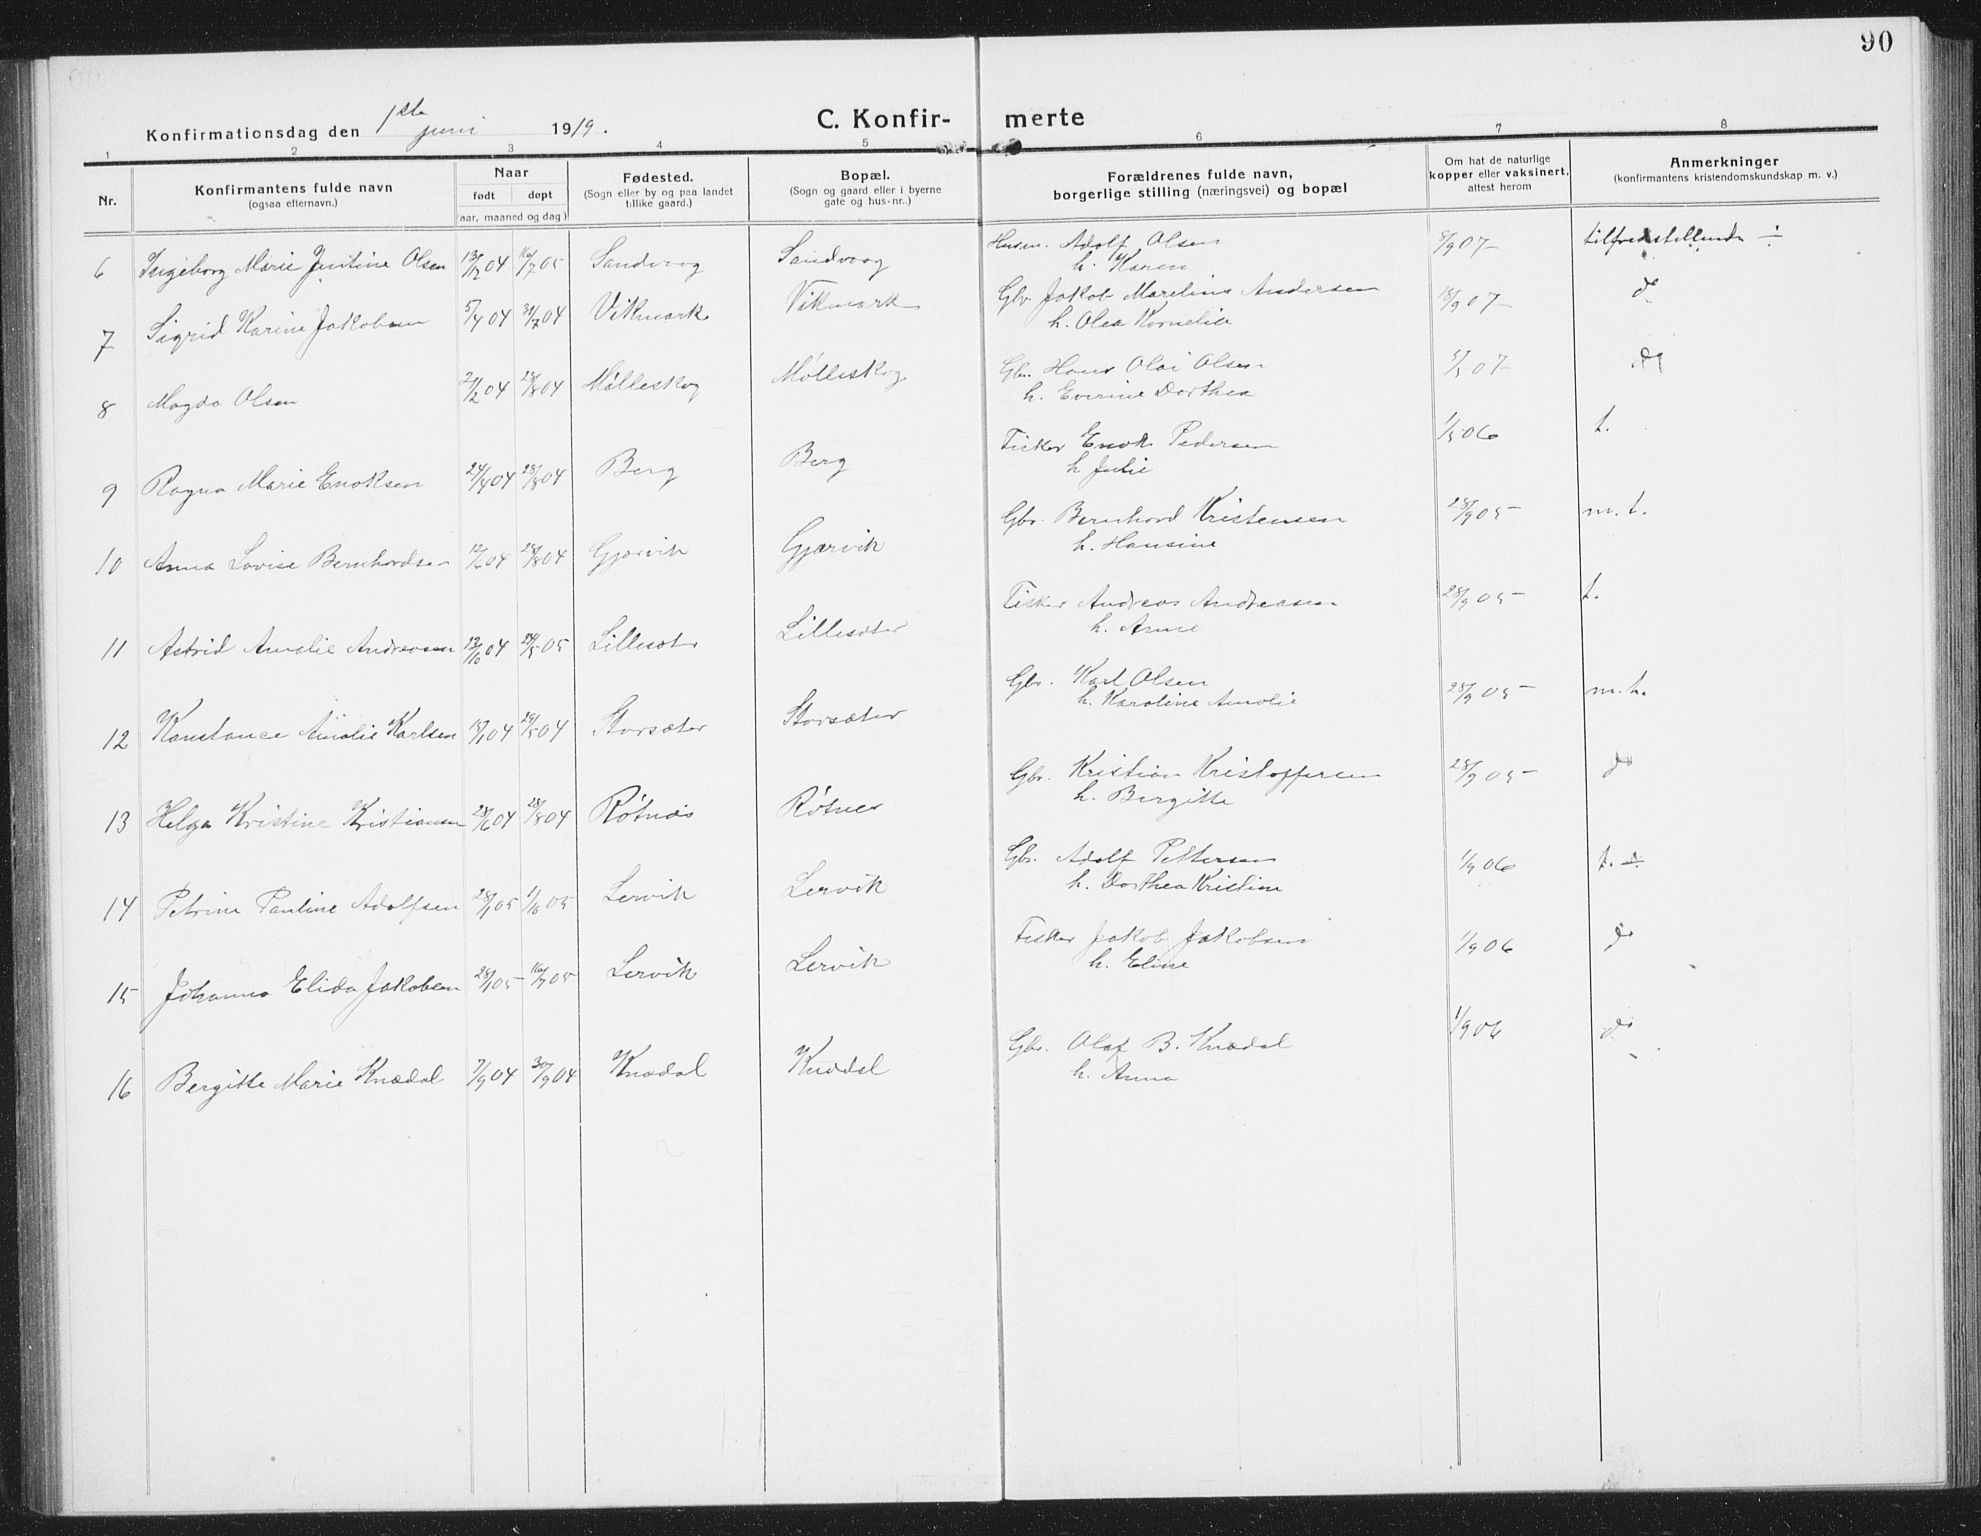 90
Konfirmationsdag den 1ste juni 1919.
C. Konfirmerte
1 2 3 4 5 6 7 8
Nr.
Konfirmantens fulde navn
(ogsaa efternavn.)
Naar
født døpt
(aar, maaned og dag)
Fødested.
(Sogn eller by og paa landet
tillike gaard.)
Bopæl.
(Sogn og gaard eller i byerne
gate og hus-nr..)
Forældrenes fulde navn,
borgerlige stilling (næringsvei) og bopæl
Om hat de naturlige
kopper eller vaksinert,
attest herom
Anmerkninger
(konfirmantens kristendomskundskap m. v.)
6 Ingeborg Marie Jentine Olsen 13/2 04 16/7 05 Sandvaag Sandvaag Husm. Adolf Olsen 8/9 07 tilfredsstillende ÷
h. Karen
7 Sigrid Karine Jakobsen 5/4 04 31/7 04 Vikmark Vikmark Gbr. Jakob Marelius Andersen 18/9 07 do
h. Olea Kornelie
8 Magda Olsen 21/2 04 28/8 04 Mølleskog Mølleskog Gbr. Hans Olai Olsen 07 do
h. Everine Dorthea
9 Ragna Marie Enoksen 24/4 04 28/8 04 Berg Berg Fisker Enok Pedersen 06 t.
h. Julie
10 Anna Lovise Bernhardsen 12/6 04 28/8 04 Gjærvik Gjærvik Gbr. Bernhard Kristensen 28/9 05 m.t.
h. Hansine
11 Astrid Amalie Andreasen 12/10 04 05 Lillesæter Lillesæter Fisker Andreas Andreasen 28/9 05 t.
h. Anne
12 Konstance Amalie Karlsen 04 29/5 04 Storsæter Storsæter Gbr. Karl Olsen 28/9 05 m.t.
h. Karoline Amalie
13 Helga Kristine Kristiansen 28/6 04 28/8 04 Røtnes Røtnes Gbr. Kristian Kristoffersen 28/9 05 do
h. Bergitte
14 Petrine Pauline Adolfsen 28/1 05 1/10 05 Lervik Lervik Gbr. Adolf Pettersen 1/9 06 t. ÷
h. Dorthea Kristine
15 Johanna Elida Jakobsen 28/1 05 16/7 05 Lervik Lervik Fisker Jakob Jakobsen 1/9 06 do
h. Eline
16 Bergitte Marie Knædal 7/9 04 30/9 04 Knædal Knædal Gbr. Olaf B. Knædal 1/9 06 do
h. Anna